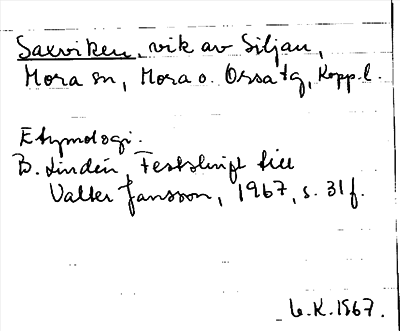 Saxviken, vik av Siljan,
Mora sn, Mora o. Orsa tg, Kopp. l.
Etymologi.
B. Lindén, Festskrift till
Valter Jansson, 1967, s. 31 f.
L.K. 1967.